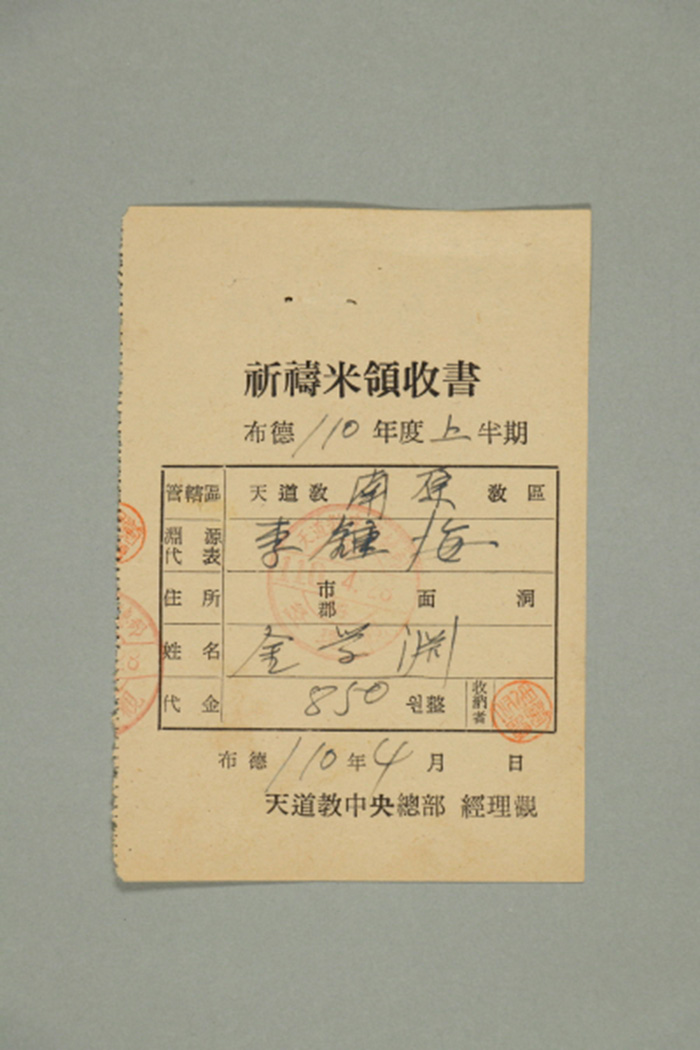 祈禱米領收書
布德110年度上半期
管轄區 天道敎 南原 敎區
淵源代表 李鍾海
住所 市郡 面 洞
姓名 金学淵
代金 850 원整 收納者
布德110年4月 日
天道敎中央總部 經理觀